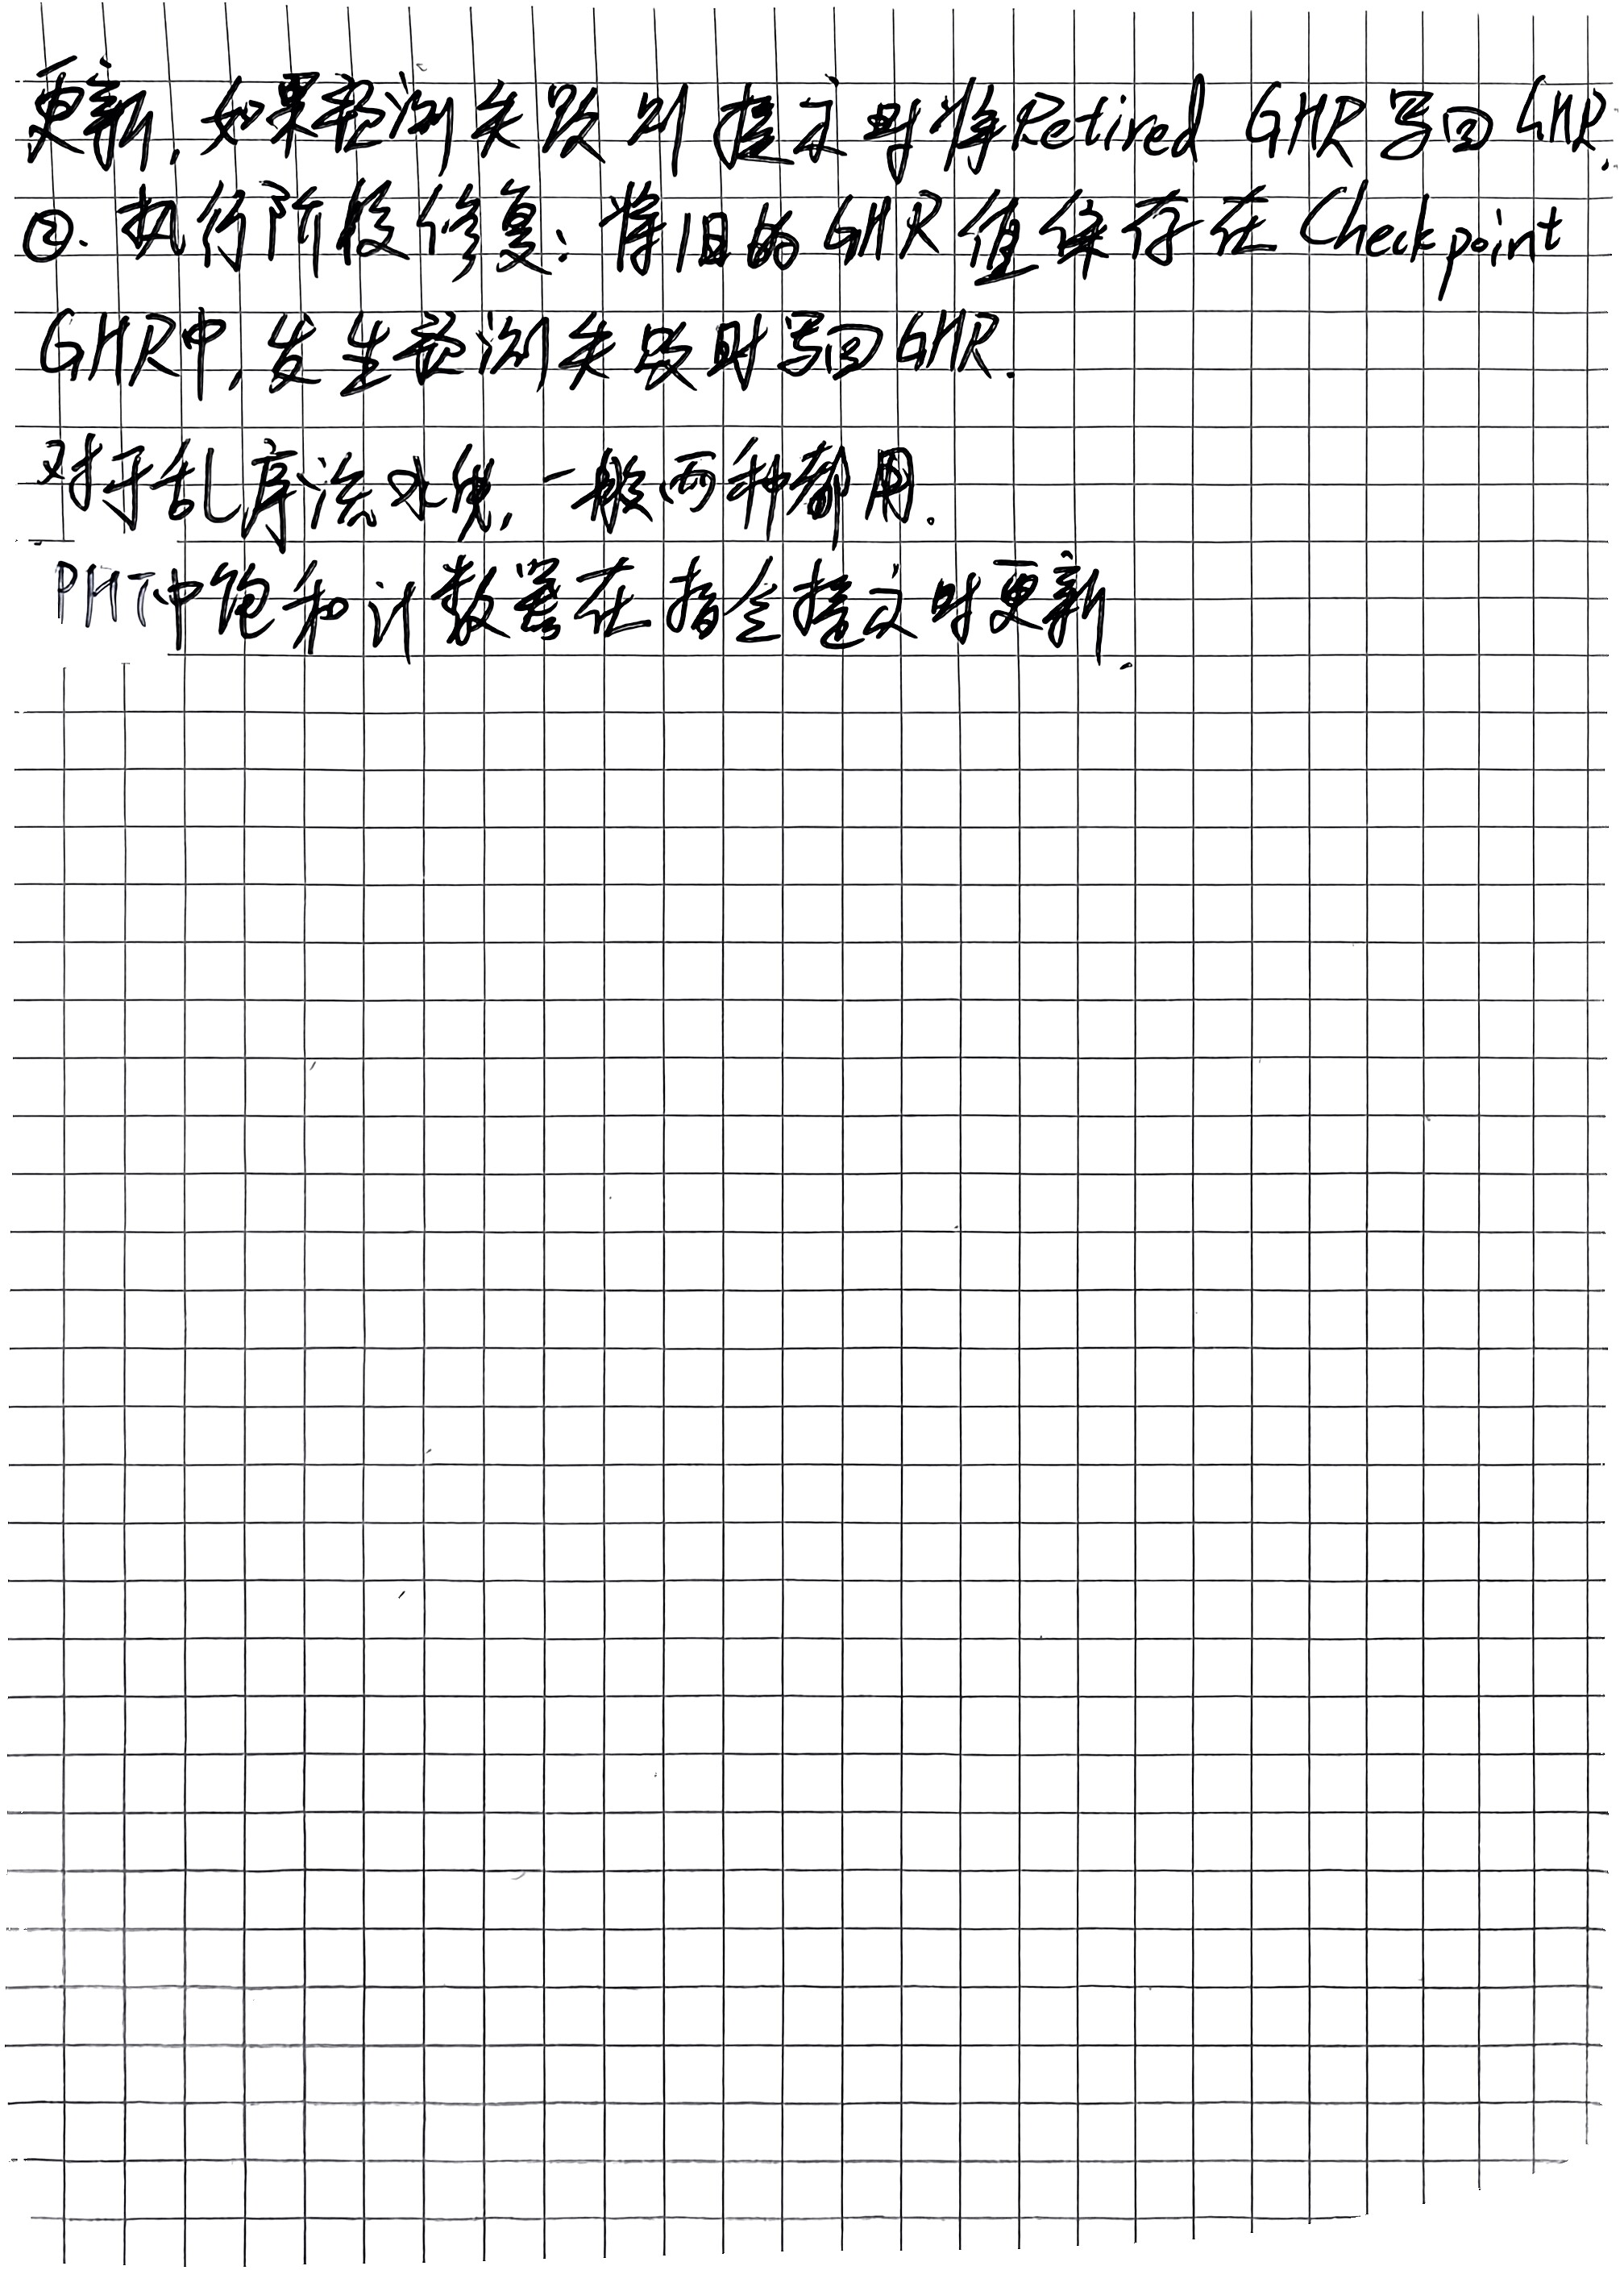 更新,如果预测失败则提交时将Retired GHR写回GHR.
②.执行阶段修复:将旧的GHR值保存在Checkpoint
GHR中,发生预测失败时写回GHR.
对于乱序流水线,一般两种都用.
PHT中饱和计数器在指令提交时更新.